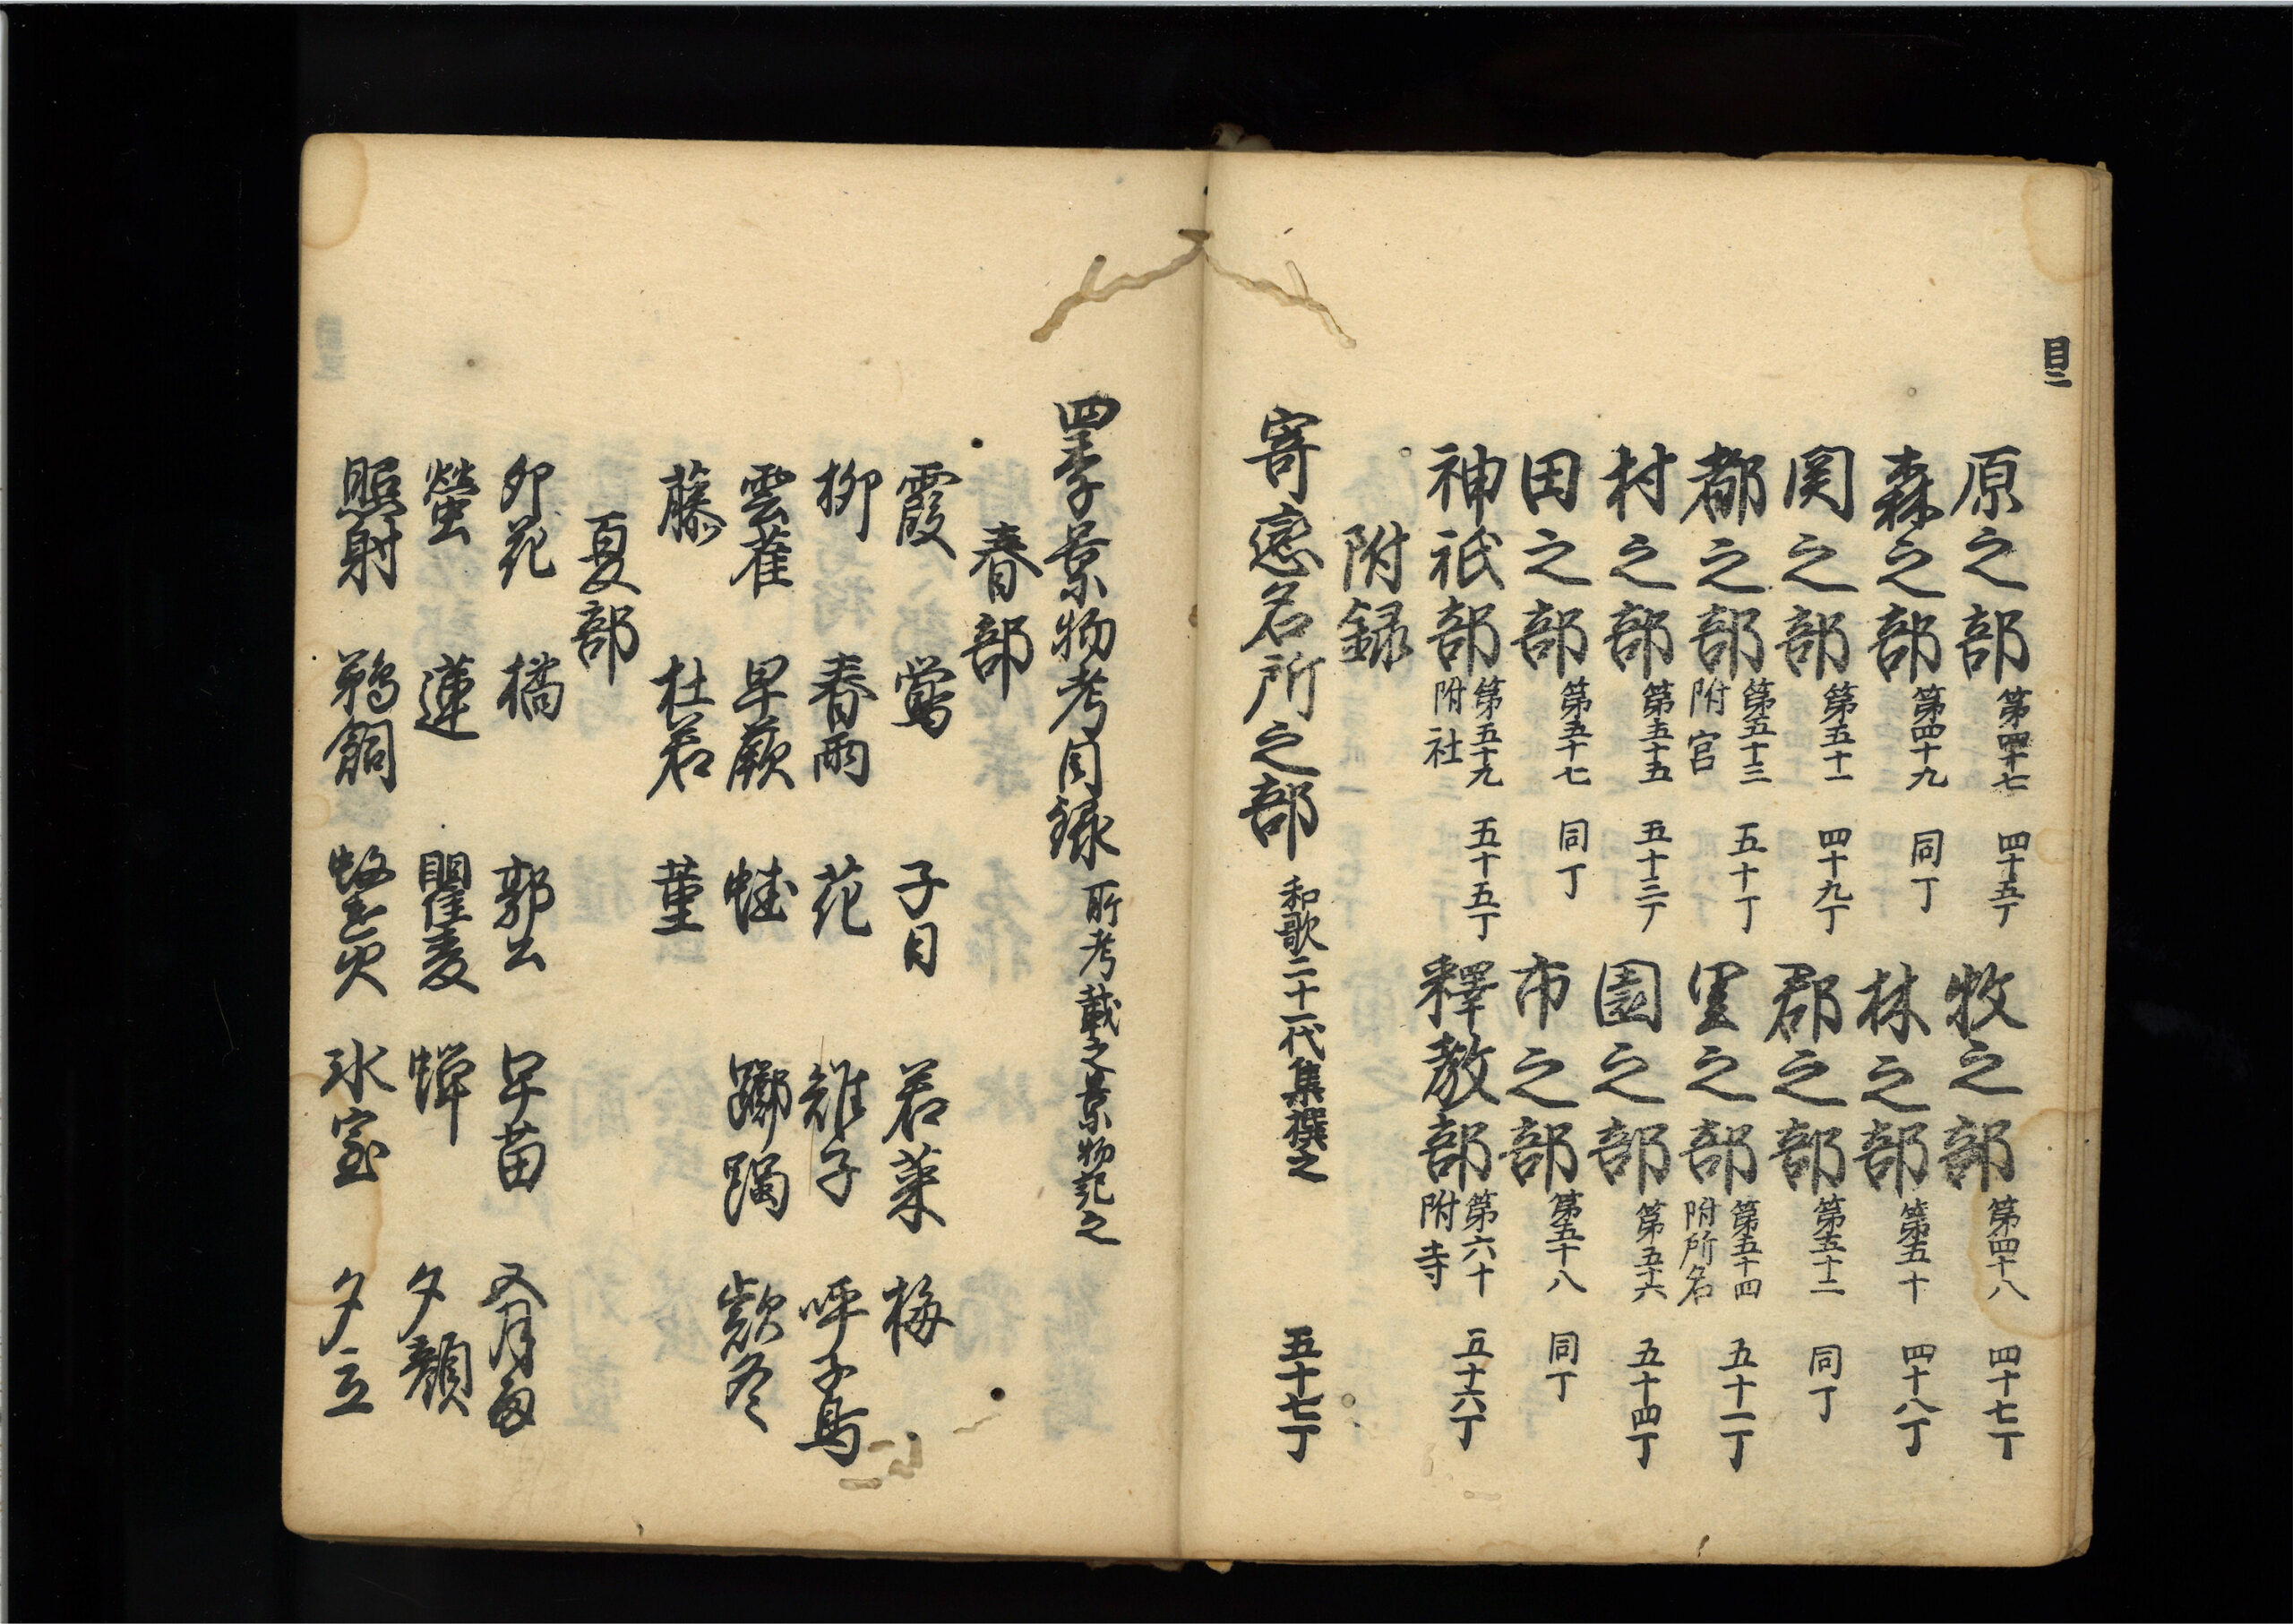 目二
原之部 第四十七 四十五丁 牧之部 第四十八 四十七丁
森之部 第四十九 同丁 林之部 第五十 四十八丁
関之部 第五十一 四十九丁 郡之部 第五十二 同丁
都之部 第五十三 附宮 五十丁 里之部 第五十四 附所名 五十一丁
村之部 第五十五 五十三丁 園之部 第五十六 五十四丁
田之部 第五十七 同丁 市之部 第五十八 同丁
神祇部 第五十九 附社 五十五丁 釋教部 第六十 附寺 五十六丁
附録
寄戀名所之部 和歌二十一代集撰之 五十七丁
四季景物考目録 所考載之景物記之
春部
霞 鶯 子日 若菜 梅
柳 春雨 花 雉子 呼子鳥
雲雀 早蕨 蛙 躑躅 欵冬
藤 杜若 菫
夏部
卯花 橘 郭公 早苗 五月雨
螢 蓮 瞿麦 蝉 夕顔
照射 鵜飼 蚊遣火 氷室 夕立